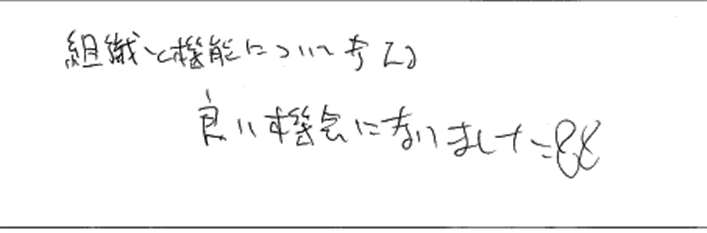 組織と機能について考える
良い機会になりました